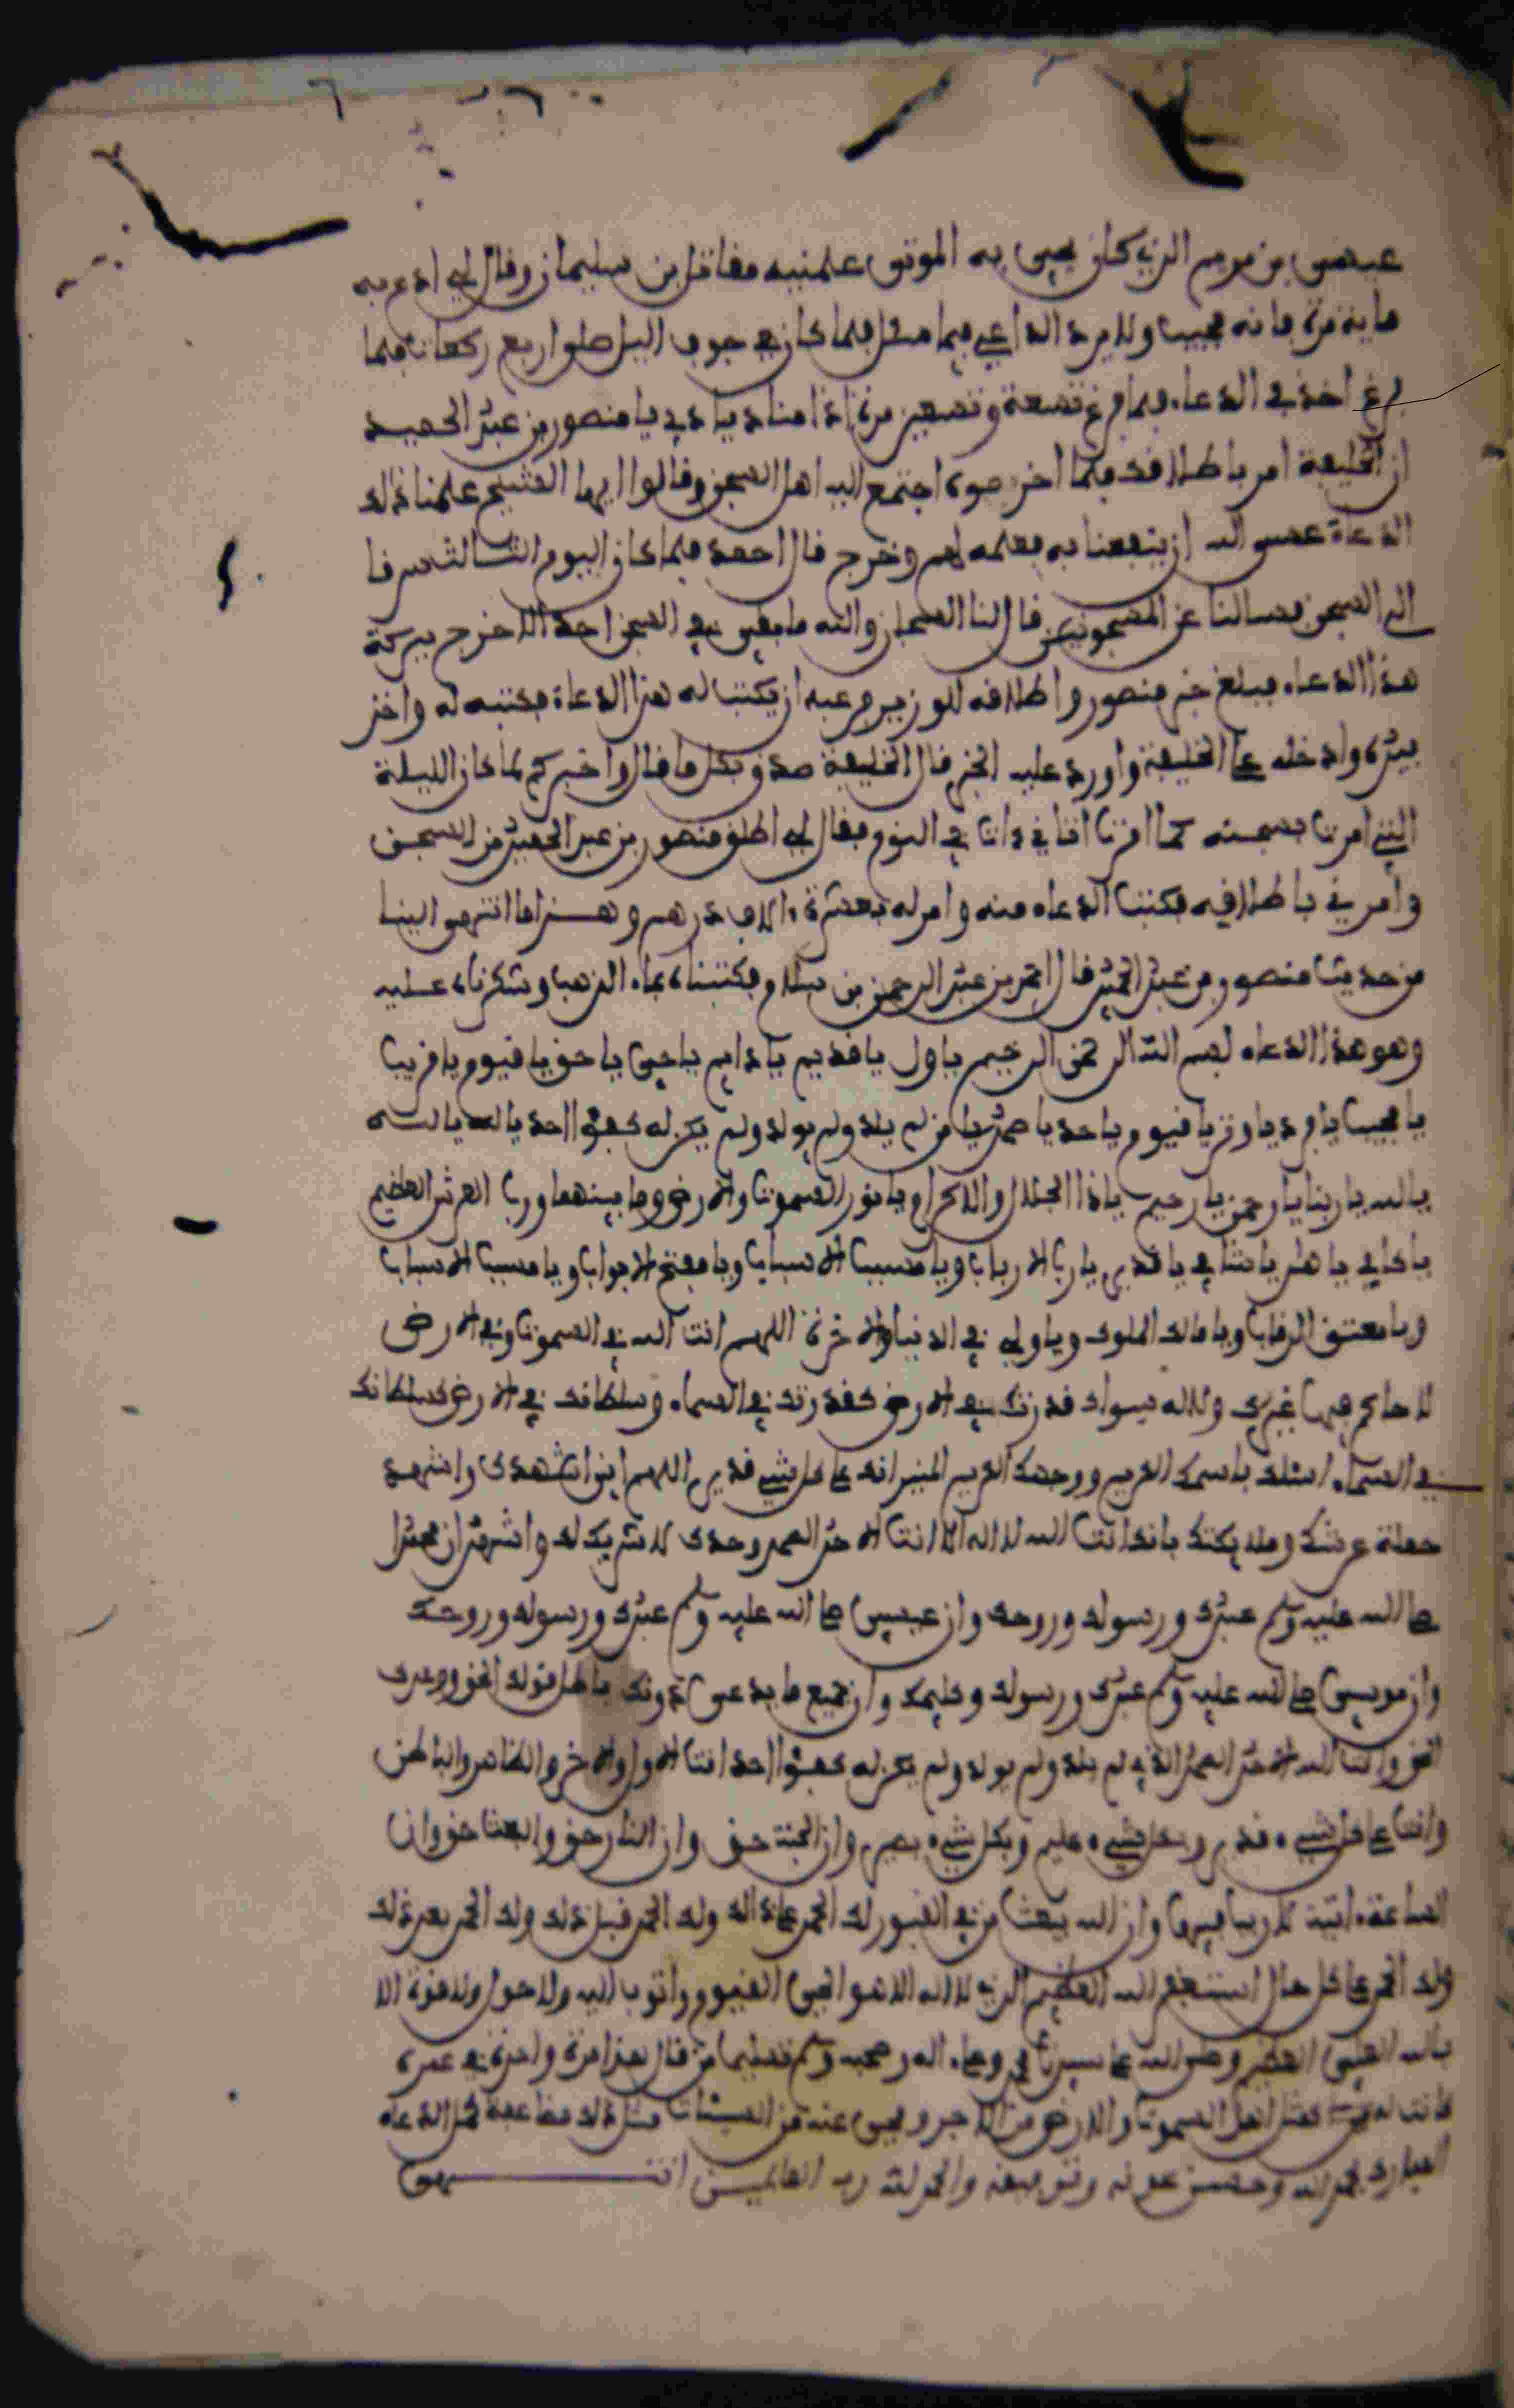 عيسى بن مريم الذي كان يحيي به الموتى علمنيه مقاتل بن سليمان وقال لي ادع به
ماية مرة فانه مجيب ولا يرد الداعي فيما سئل فلما كان في جوف اليل صلوا اربع ركعات فلما
فرغ اخذ في الدعاء فما فرغ تسعة وتسعين مرة اذا مناد ينادي يا منصور بن عبد الحميد
ان الخليفة امر باطلاقك فلما اخرجوه اجتمع اليه اهل السجن وقالوا ايها الشيخ علمنا ذلك
الدعاء عسى الله ان ينفعنا به فعلمه لهم وخرج قال احمد فلما كان اليوم الثالث صرنا
الى السجن فسالنا عن المسجونين قال لنا السجان والله ما بقي في السجن احد الا خرج ببركة
هذا الدعاء فبلغ خبر منصور واطلاقه للوزير فرغبه ان يكتب له هذا الدعاء فكتبه له واخذ
بيده وادخله على الخليفة واورد عليه الخبر فقال الخليفة صدق بكل ما قال واخبركم لما كان الليلة
التي امرنا بسجنه كما امرنا اتاني ءات في النوم فقال لي اطلق منصور بن عبد الحميد من السجن
وامرني باطلاقه فكتب الدعاء منه وامر له بعشرة ءالاف درهم وهذا ما انتهى الينا
من حديث منصور بن عبد الحميد قال احمد بن عبد الرحمن بن سلام فكتبناه بماء الذهب وشكرناه عليه
وهو هذا الدعاء بسم الله الرحمن الرحيم ياول يا قديم يا دايم يا حي يا حق يا قيوم يا قريب
يا مجيب يا فرد يا وتر يا قيوم يا حد يا صمد يا من لم يلد ولم يولد ولم يكن له كفؤا احد يا الله يا الله
يا الله يا ربنا يا رحمن يا رحيم يا ذا الجلال والاكرام يا نور السموت والارض وما بينهما ورب العرش العظيم
يا كافي يا هاد يا شافي يا قدير يا رب الارباب ويا مسبب الاسباب ويا مفتح الابواب ويا مسبب الاسباب
ويا معتق الرقاب ويا مالك الملوك ويا ولي في الدنيا والاخرة اللهم انت اله في السموت وفي الارض
لا حاكم فيها غيرك ولا اله سواك قدرتك في الارض كقدرتك في السماء وسلطانك في الارض كسلطانك
في السماء اسئلك باسمك الكريم ووجهك الكريم المنير انك على كل شيء قدير اللهم اني اشهدك واشهد
حملة عرشك وملايكتك بانك انت الله لا اله الا انت الاحد الصمد وحدك لا شريك لك واشهد ان محمدا
صلى الله عليه وسلم عبدك ورسولك وروحك وان عيسى صلى الله عليه وسلم عبدك ورسولك وروحك
وان موسى صلى الله عليه وسلم عبدك ورسولك وكليمك وان جميع ما يدعى دونك باطل قولك الحق ووعدك
الحق وانت الله الاحد الصمد الذي لم يلد ولم يولد ولم يكن له كفؤا احد انت الاول والاخر والظاهر والباطن
وانت على كل شيء قدير وبكل شيء عليم وبكل شيء بصير وان الجنة حق وان النار حق والبعث حق وان
الساعة ءاتية لا ريب فيها وان الله يبعث من في القبور لك الحمد على ذالك ولك الحمد قبل ذلك ولك الحمد بعد ذلك
ولك الحمد على كل حال استغفر الله العظيم الذي لا اله الا هو الحي القيوم واتوب اليه ولا حول ولا قوة الا
بالله العلي العظيم وصلى الله على سيدنا محمد وعلى اله وصحبه وسلم تسليما من قال هذا مرة واحدة في عمره
كانت له كمثل اهل السموت والارض من الاجر ومحي عنه من السيئات مثل ذلك مضاعفة كمل الدعاء
المبارك بحمد الله وحسن عونه وتوفيقه والحمد لله رب العالمين انتهى